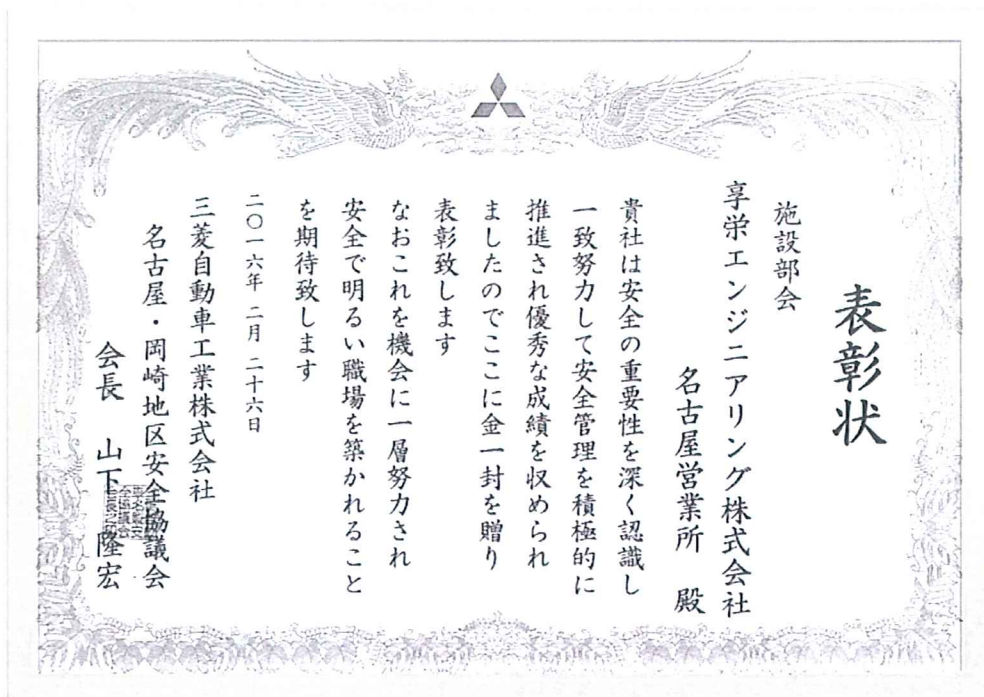 表彰状
施設部会
享栄エンジニアリング株式会社
名古屋営業所 殿
貴社は安全の重要性を深く認識し
一致努力して安全管理を積極的に
推進され優秀な成績を収められ
ましたのでここに金一封を贈り
表彰致します
なおこれを機会に一層努力され
安全で明るい職場を築かれること
を期待致します
二〇一六年 二月 二十六日
三菱自動車工業株式会社
名古屋・岡崎地区安全協議会
会長 山下 隆宏